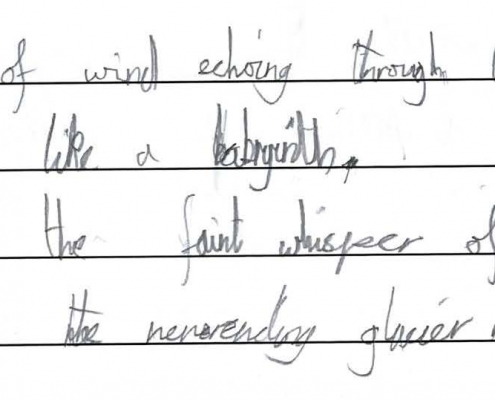 of wind echoing through
like a labyrinth,
the faint whisper of
the neverending glacier